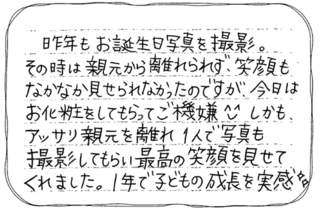 昨年もお誕生日写真を撮影。
その時は親元から離れられず、笑顔も
なかなか見せられなかったのですが、今日は
お化粧をしてもらってご機嫌 しかも、
アッサリ親元を離れ1人で写真も
撮影してもらい最高の笑顔を見せて
くれました。1年で子どもの成長を実感